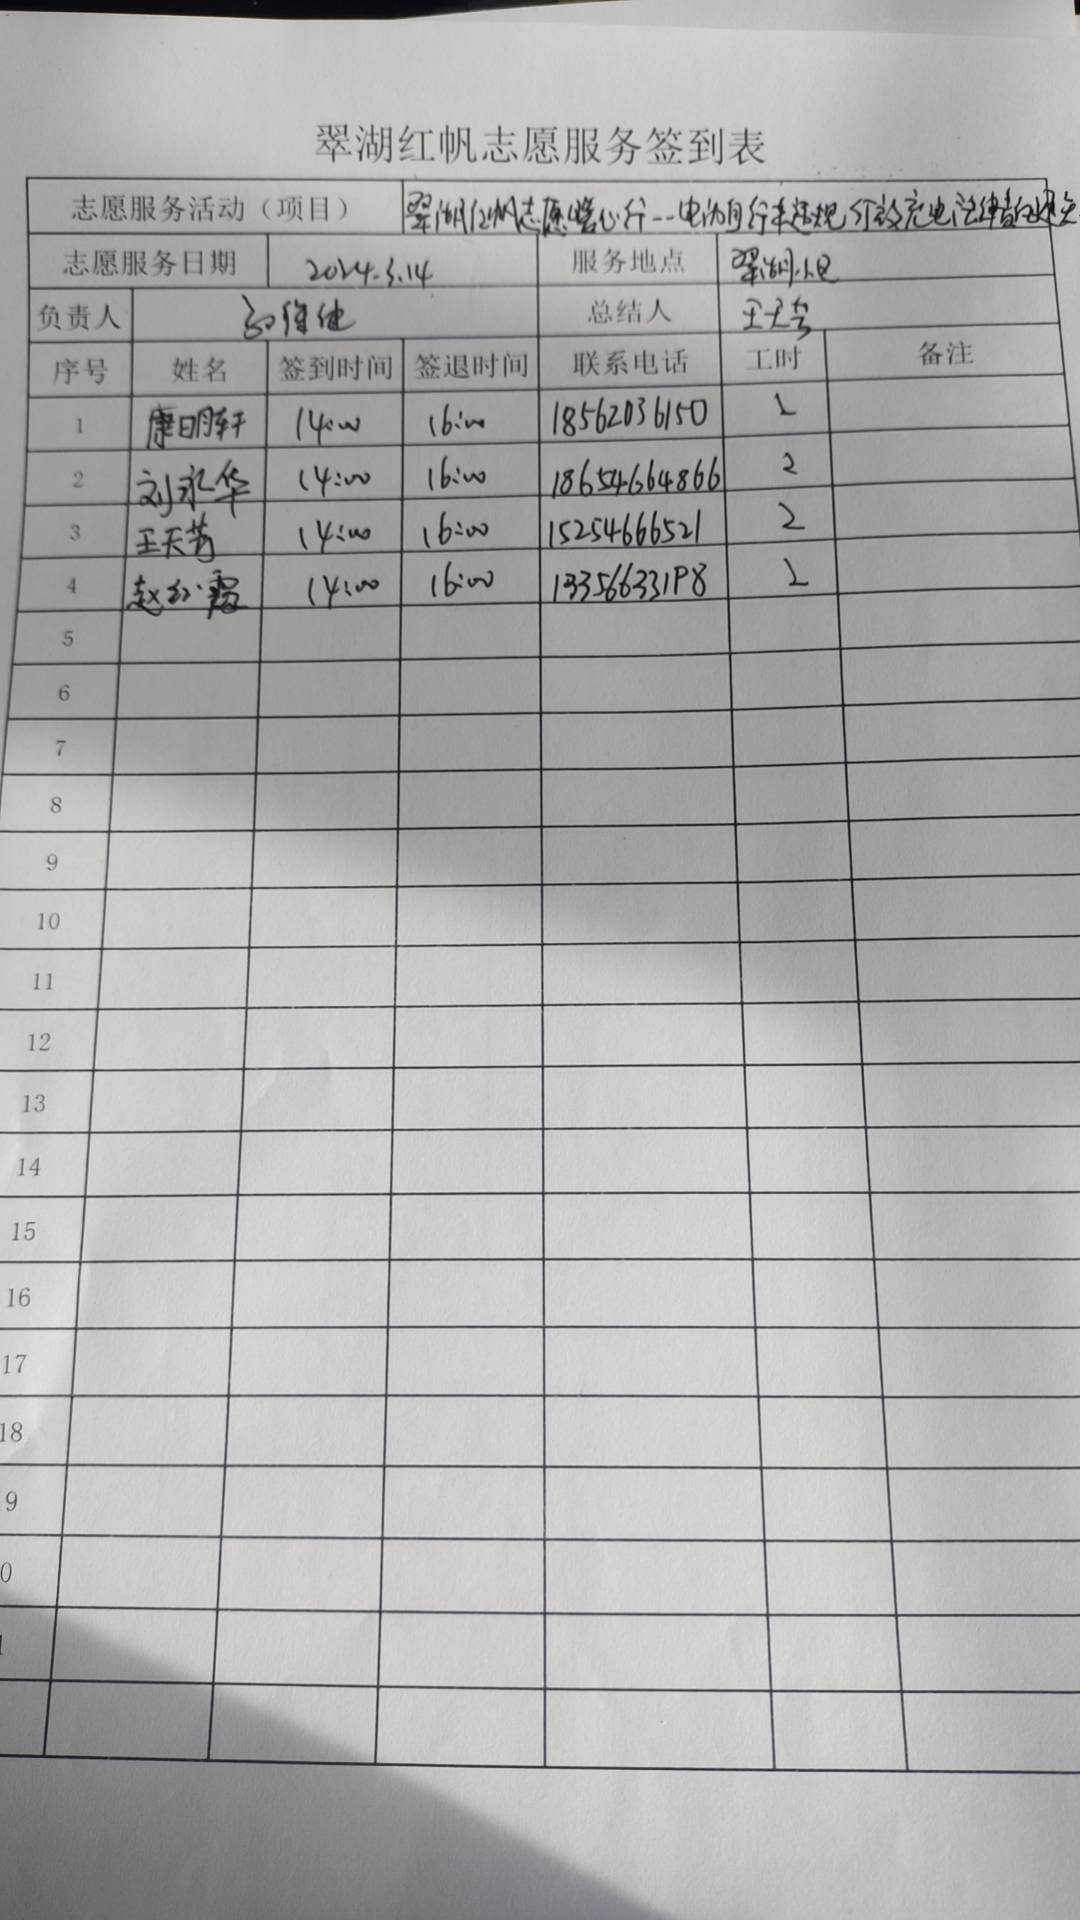 翠湖红帆志愿服务签到表
志愿服务活动（项目） 翠湖红帆志愿暖心行--电动自行车违规停放充电法律责任
志愿服务日期 2024.3.14 服务地点 翠湖小区
负责人 总结人 王天芳
序号 姓名 签到时间 签退时间 联系电话 工时 备注
1 康明轩 14:00 16:00 18562036150 2
2 刘永华 14:00 16:00 18654664866 2
3 王天芳 14:00 16:00 15254666521 2
4 赵红霞 14:00 16:00 13356633198 2
5
6
7
8
9
10
11
12
13
14
15
16
17
18
9
0
1